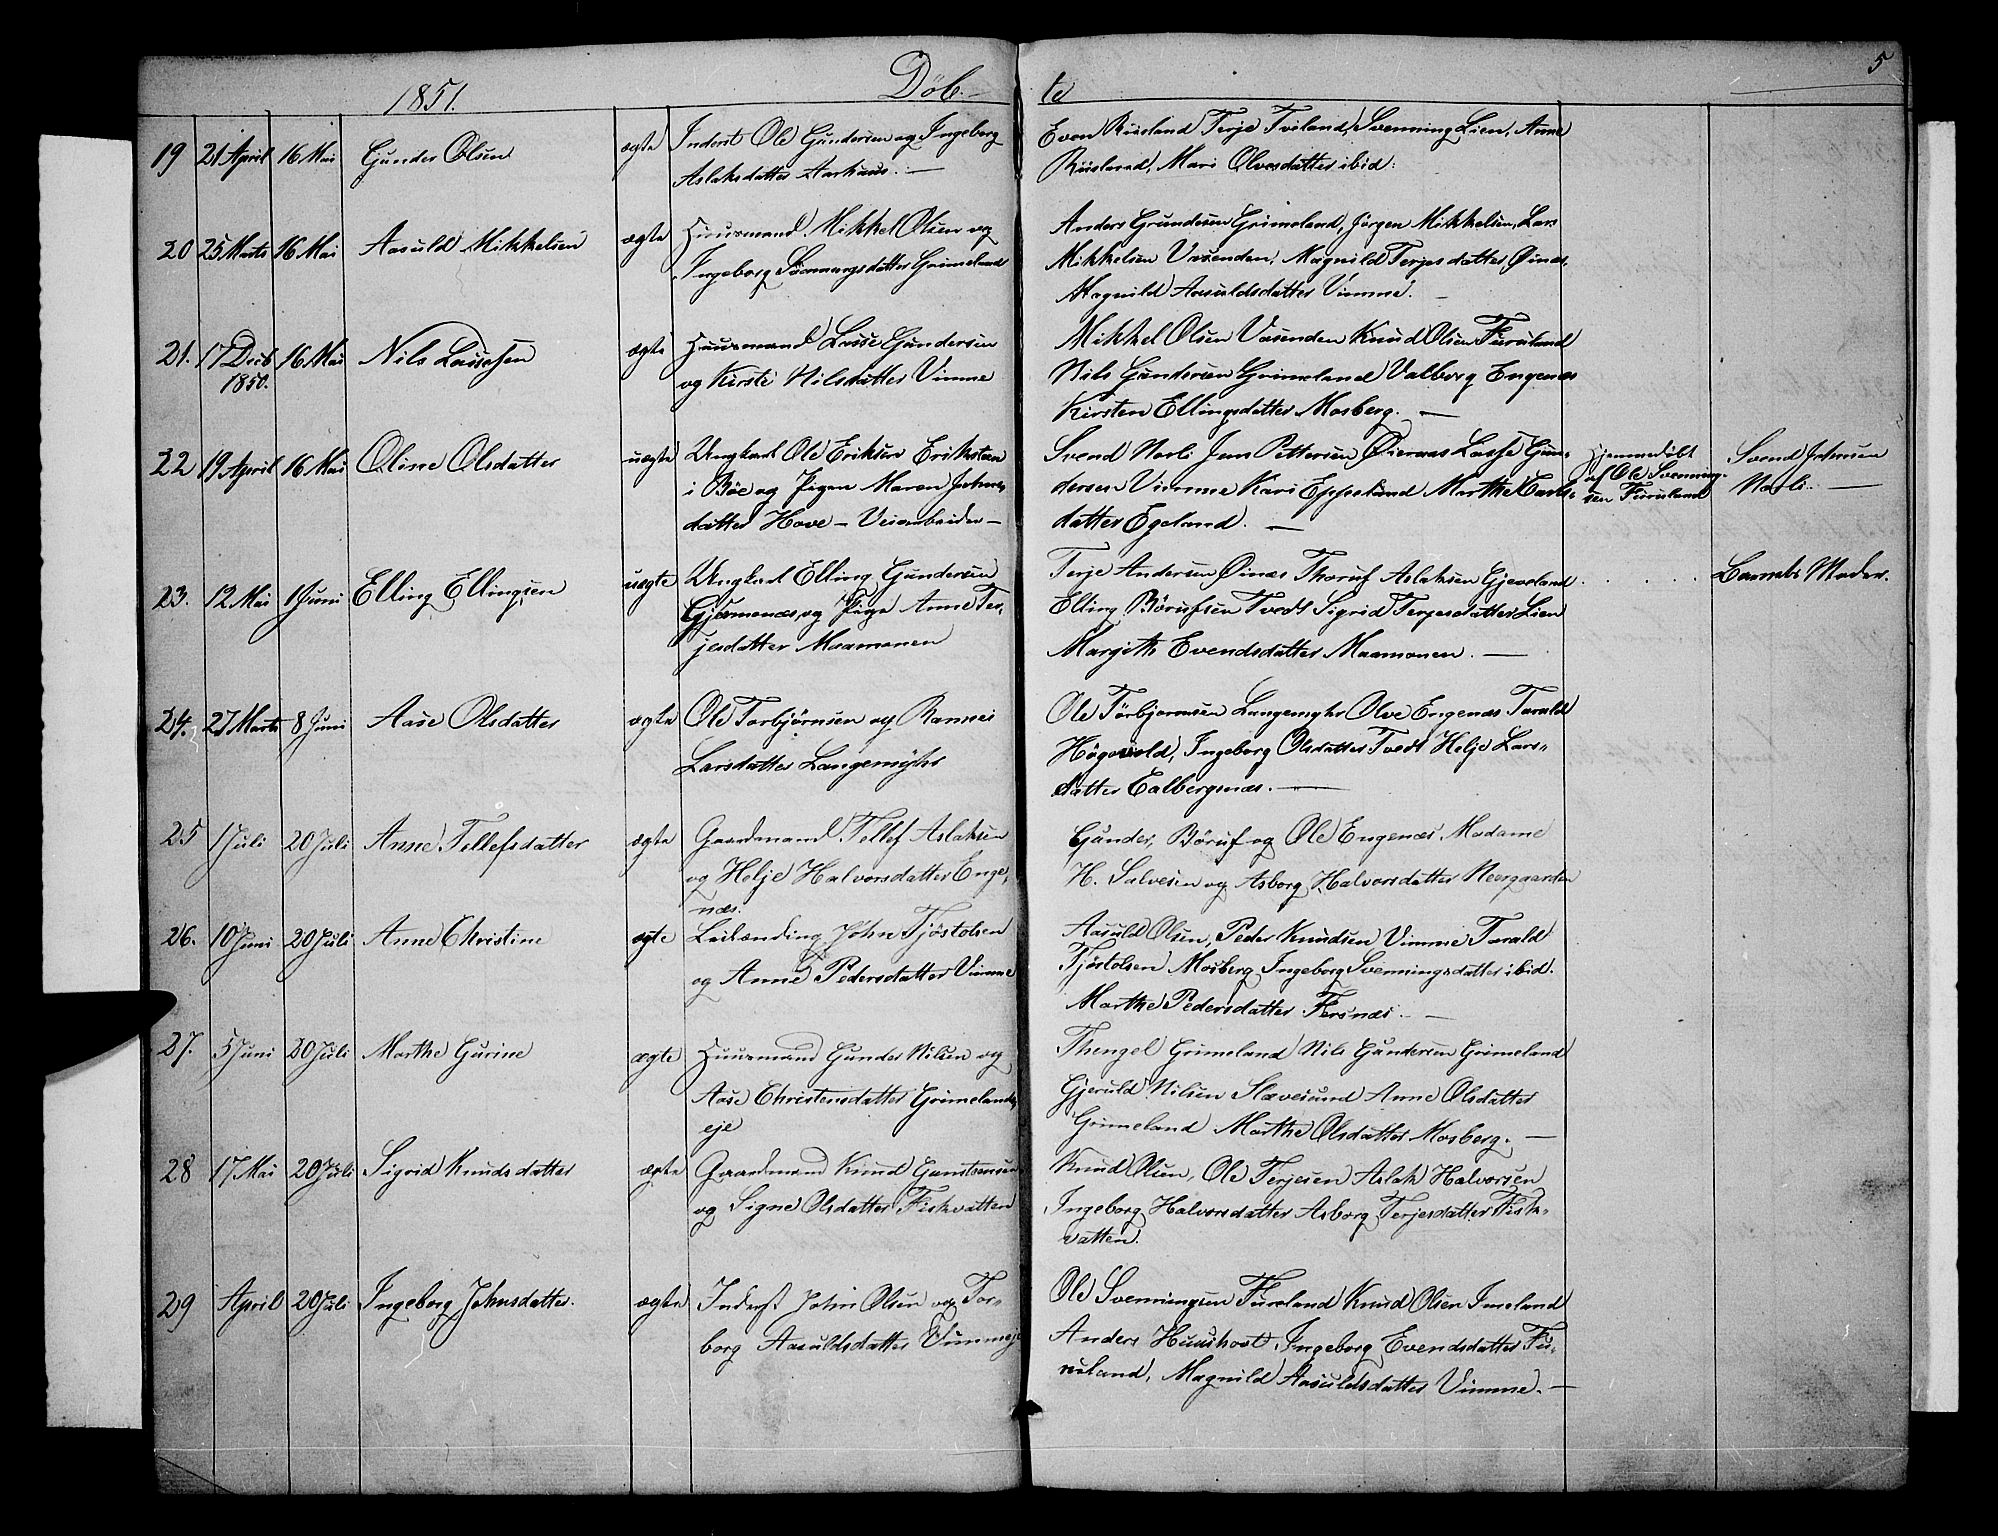 1851. Døb- te 5
19 21 April 16 Mai Gunder Olsen ægte Inderst Ole Gundersen og Ingeborg
Aslaksdatter Aarhuus. —
Even Riisland Terje Tviland, Svenning Lien, Anne
Riisland, Mari Olvesdatter ibid:
20 25 Marts 16 Mai Aasuld Mikkelsen ægte Huusmand Mikkel Olsen og
Ingeborg Svenningsdatter Grimeland
Anders Gundersen Grimeland, Jörgen Mikkelsen, Lars
Mikkelsen Vasenden, Magnild Terjesdatter Øinæs,
Magnild Aasuldsdatter Vimme. —
21. 17 Decb 1850. 16 Mai Nils Lassesen ægte Huusmand Lasse Gundersen
og Kirste Nilsdatter Vimme
Mikkel Olsen Vasenden Knud Olsen Furuland
Nils Gundersen Grimeland Valborg Engenæs
Kirsten Ellingsdatter Mosberg. —
22 19 April 16 Mai Oline Olsdatter uægte Ungkarl Ole Eriksen Erikstein
i Böe og Pigen Maren Johns-
datter Hove – Veiarbeider –
Svend Norli Jens Pettersen Lasse Gun-
dersen Vimme Kari Eppeland Marthe
datter Egeland. —
Hjemmedöbt
af Ole Svenning-
sen Furuland
Svend Johnsen
Norli. —
23. 12 Mai 1 Juni Elling Ellingsen uægte Ungkarl Elling Gundersen
Gjermonæs, og Pige Anne Ter-
jesdatter Maamonen
Terje Andersen Øinæs Thoruf Aslaksen Gjeveland
Elling Börufsen Tvedt Sigrid Terjesdatter Lien
Margith Evendsdatter Maamonen. —
Barnets Moder.
24. 27 Marts 8 Juni Aase Olsdatter ægte Ole Torbjörnsen og Rannei
Larsdatter Langemyhr
Ole Torbjornsen Langemyhr Olve Engenæs Tarald
Högevold, Ingeborg Olsdatter Tvedt Helje Lars-
datter Ealbergsnæs. —
25 1 Juli 20 Juli Anne Tellefsdatter ægte Gaardmand Tellef Aslaksen
og Helje Halvorsdatter Enge,
næs.
Gunder, Böruf og Ole Engenæs. Madame
H. Salvesen og Asborg Halvorsdatter Neergaarden
26. 10 Juni 20 Juli Anne Christine ægte Leilænding John Tjöstolsen
og Anne Pedersdatter Vimme
Aasuld Olsen, Peder Knudsen Vimme Tarald
Tjöstolsen Mosberg Ingeborg Svenningsdatter ibid.
Marthe Pedersdatter Fersnæs. —
27. 5 Juni 20 Juli Marthe Gurine ægte Huusmand Gunder Nilsen og
Aase Christensdatter Grimelands
eje
Thengel Grimeland Nils Gundersen Grimeland
Gjeruld Nilsen Slævesund Anne Olsdatter
Grimeland Marthe Olsdatter Mosberg. —
28 17 Mai 20 Juli Sigrid Knudsdatter ægte Gaardmand Knud Gunstensen
og Signe Olsdatter Fiskvatten
Knud Olsen, Ole Terjesen Aslak Halvorsen
Ingeborg Halvorsdatter Asborg Terjesdatter Fisk-
vatten.
29 April 20 Juli Ingeborg Johnsdatter. ægte Inderst John Olsen og Tor-
borg Aasuldsdatter Vimmeje
Ole Svenningsen Furuland Knud Olsen Imeland
Anders Huushovt, Ingeborg Evendsdatter Fu-
ruland, Magnild Aasuldsdatter Vimme. —